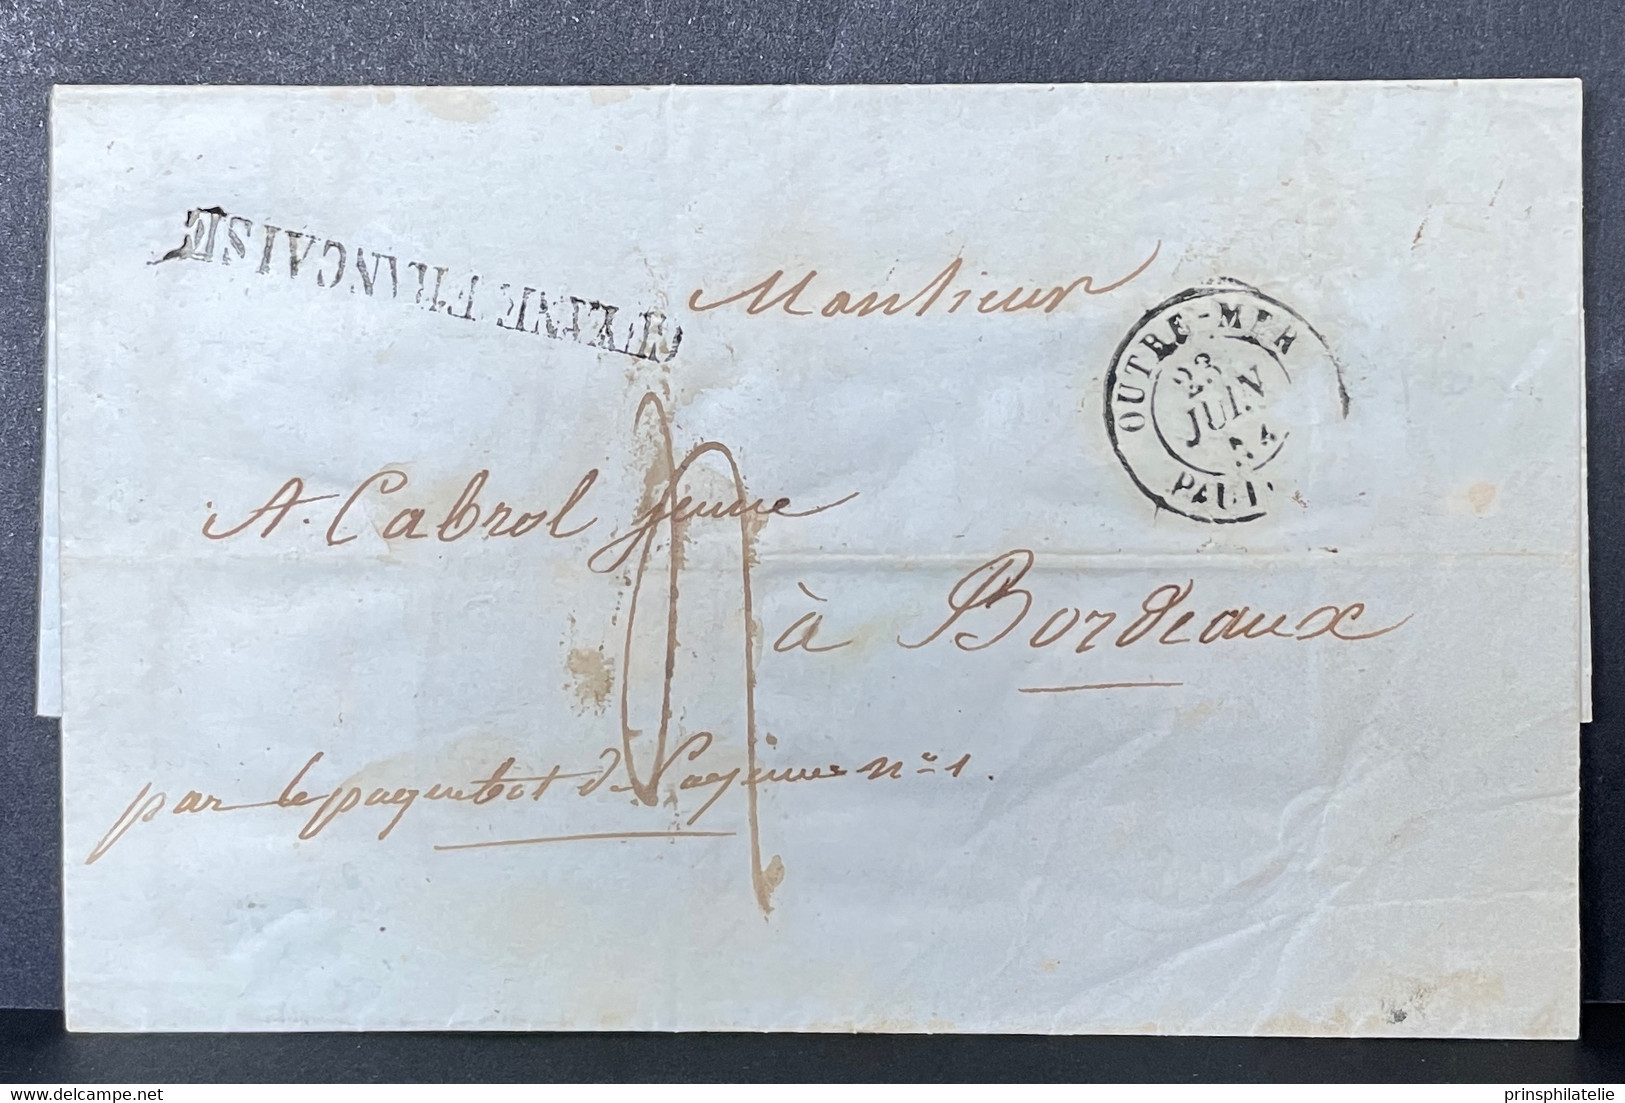 GUYANE FRANCAISE
Monsieur
OUTRE-MER
23
JUIN
PAUIL
A. Cabrol Jeune
à Bordeaux
par le paquebot de Cayenne nº 1.
prinsphilatelie